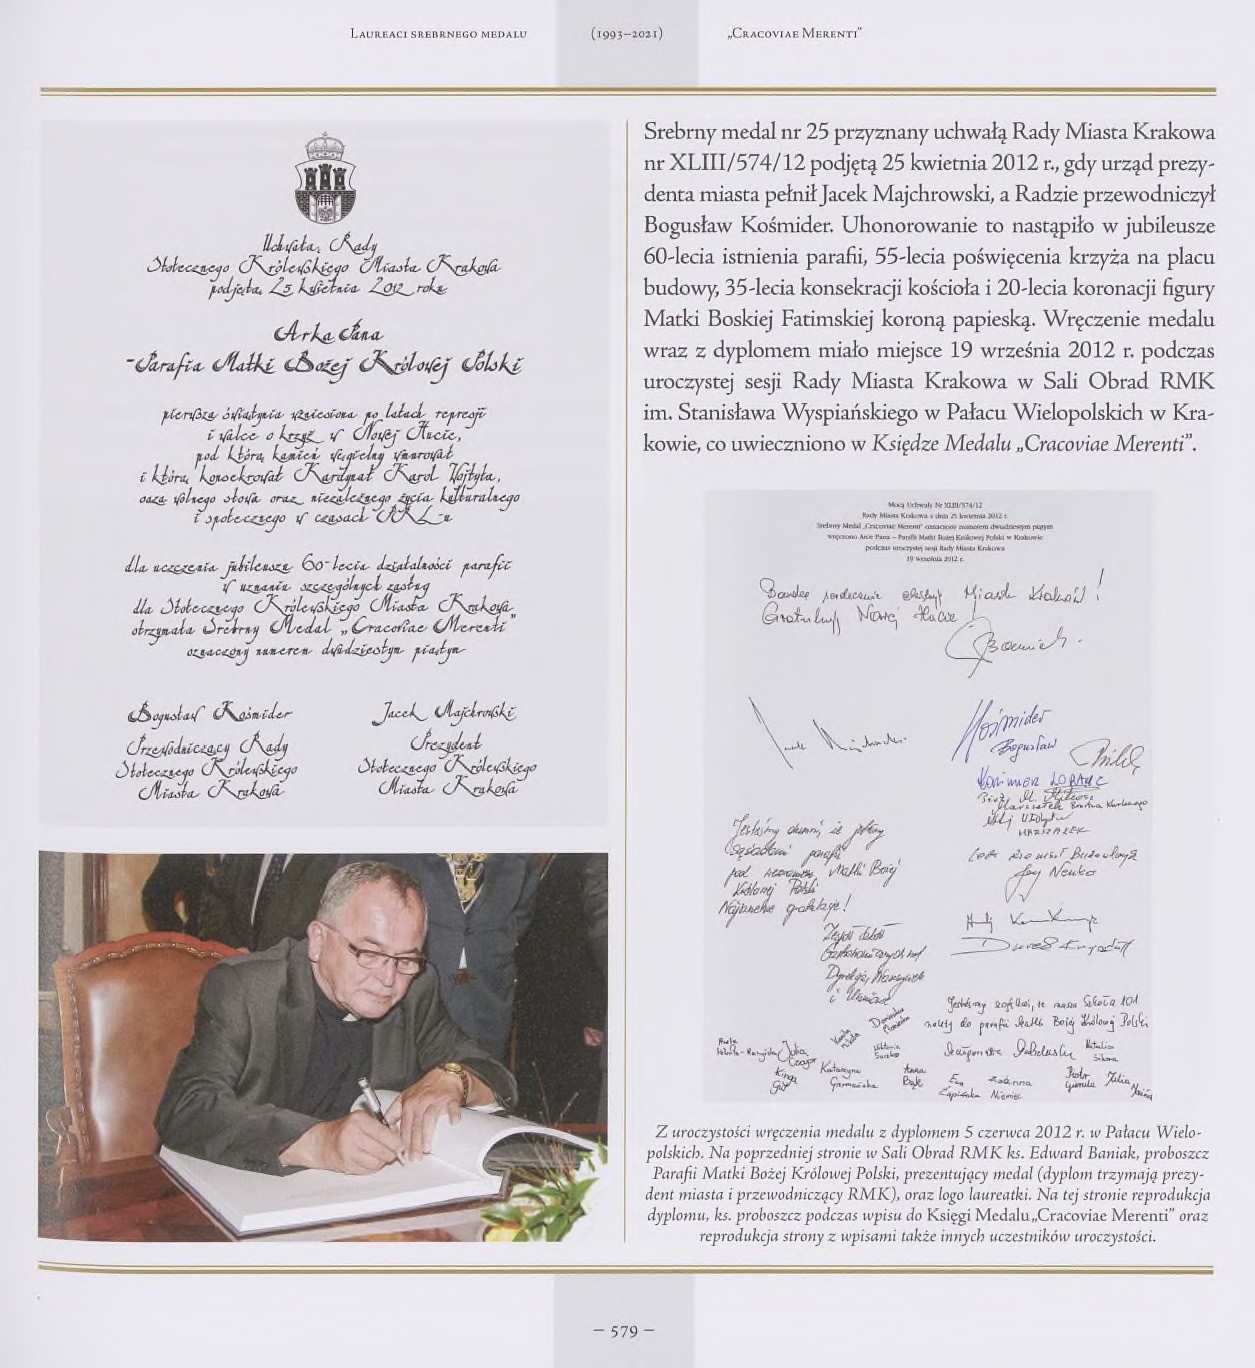 Laureaci srebrnego medalu (1993–2021) „Cracoviae Merenti”
Uchwała Rady
Stołecznego Królewskiego Miasta Krakowa
podjęta 25 kwietnia 2012 roku
Arka Pana
-Parafia Matki Bożej Królowej Polski
pierwsza świątynia wzniesiona po latach represji
i walce o krzyż w Nowej Hucie,
pod którą kamień węgielny wmurował
i którą konsekrował Kardynał Karol Wojtyła,
oaza wolnego słowa oraz niezależnego życia kulturalnego
i społecznego w czasach PRL-u
dla uczczenia jubileuszu 60-lecia działalności parafii
w uznaniu szczególnych zasług
dla Stołecznego Królewskiego Miasta Krakowa
otrzymała Srebrny Medal „Cracoviae Merenti”
oznaczony numerem dwudziestym piątym
Bogusław Kośmider
Przewodniczący Rady
Stołecznego Królewskiego
Miasta Krakowa
Jacek Majchrowski
Prezydent
Stołecznego Królewskiego
Miasta Krakowa
Srebrny medal nr 25 przyznany uchwałą Rady Miasta Krakowa
nr XLIII/574/12 podjętą 25 kwietnia 2012 r., gdy urząd prezy-
denta miasta pełnił Jacek Majchrowski, a Radzie przewodniczył
Bogusław Kośmider. Uhonorowanie to nastąpiło w jubileusze
60-lecia istnienia parafii, 55-lecia poświęcenia krzyża na placu
budowy, 35-lecia konsekracji kościoła i 20-lecia koronacji figury
Matki Boskiej Fatimskiej koroną papieską. Wręczenie medalu
wraz z dyplomem miało miejsce 19 września 2012 r. podczas
uroczystej sesji Rady Miasta Krakowa w Sali Obrad RMK
im. Stanisława Wyspiańskiego w Pałacu Wielopolskich w Kra-
kowie, co uwieczniono w Księdze Medalu „Cracoviae Merenti”.
Mocą Uchwały Nr XLIII/574/12
Rady Miasta Krakowa z dnia 25 kwietnia 2012 r.
Srebrny Medal „Cracoviae Merenti” oznaczony numerem dwudziestym piątym
wręczono Arce Pana – Parafii Matki Bożej Królowej Polski w Krakowie
podczas uroczystej sesji Rady Miasta Krakowa
19 września 2012 r.
Bardzo serdecznie Miasto Kraków!
Gratuluję Nowej Hucie!
Kośmider
Bogusław
Kazimierz
MARSZAŁEK
Jesteśmy dumni, że jesteśmy
sąsiadami parafii
pod wezwaniem Matki Bożej
Królowej Polski
Najszczersze gratulacje!
Zespół Szkół
Gastronomicznych nr 1
Dyrekcja, Nauczyciele
i Uczniowie
Jesteśmy że nasza Szkoła 101
należy do parafii Matki Bożej Królowej Polski
Kinga
Katarzyna
Wiktoria
Anna
Bąk
Ewa
Zuzanna
Niemiec
Natalia
Sikora
Piotr
Julia
Z uroczystości wręczenia medalu z dyplomem 5 czerwca 2012 r. w Pałacu Wielo-
polskich. Na poprzedniej stronie w Sali Obrad RMK ks. Edward Baniak, proboszcz
Parafii Matki Bożej Królowej Polski, prezentujący medal (dyplom trzymają prezy-
dent miasta i przewodniczący RMK), oraz logo laureatki. Na tej stronie reprodukcja
dyplomu, ks. proboszcz podczas wpisu do Księgi Medalu „Cracoviae Merenti” oraz
reprodukcja strony z wpisami także innych uczestników uroczystości.
– 579 –